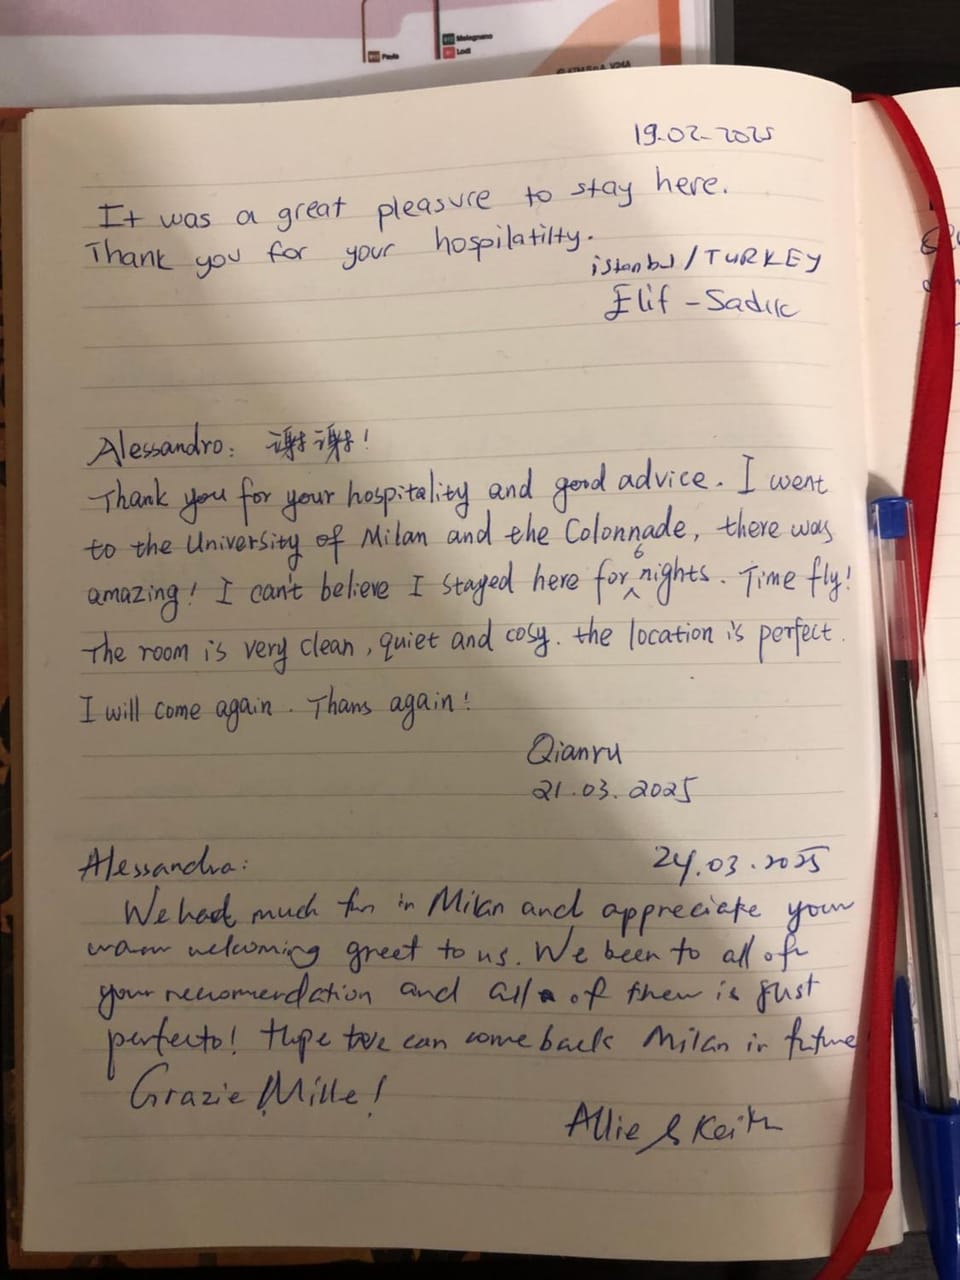 Melegnano
Lodi
Pavia
19-02-2025
It was a great pleasure to stay here.
Thank you for your hospilatilty.
istanbul/TURKEY
Elif - Sadık
Alessandro: 谢谢!
Thank you for your hospitality and good advice. I went
to the University of Milan and the Colonnade, there was
amazing! I can't believe I stayed here for 6 nights. Time fly!
The room is very clean, quiet and cosy. the location is perfect.
I will come again. Thans again!
Qianru
21.03.2025
Alessandra: 24.03.2025
We had much fun in Milan and appreciate your
warm welcoming greet to us. We been to all of
your recomendation and all of them is just
perfecto! Hope we can come back Milan in future
Grazie Mille!
Allie & Keith